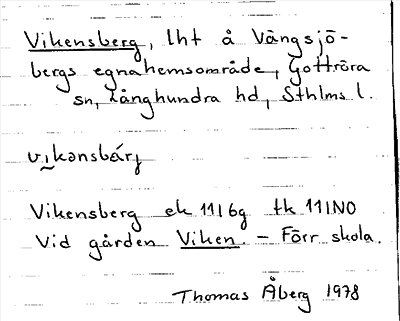 Vikensberg, lht å Vängsjö-
bergs egnahemsområde, Gottröra
sn, Långhundra hd, Sthlms l.
vi̮kənsbárj
Vikensberg ek 11I6g tk 11INO
Vid gården Viken. – Förr skola.
Thomas Åberg 1978